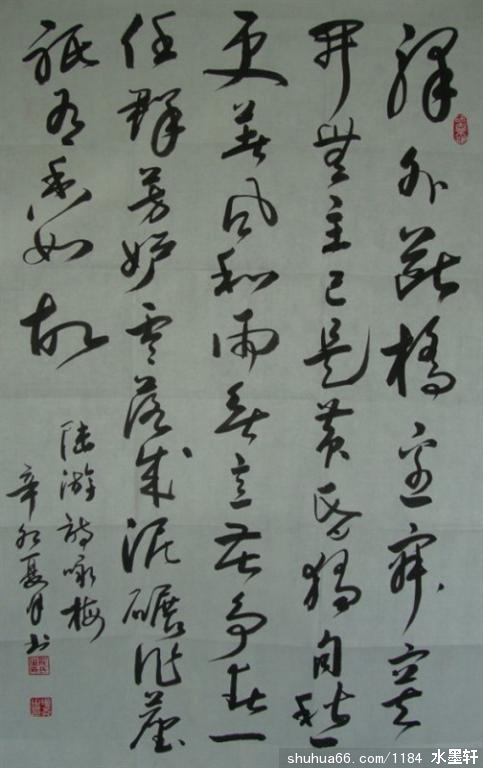 驛外斷橋邊寂寞
開無主已是黄昏獨自愁
更著风和雨無意苦争春一
任群芳妒零落成泥碾作塵
祇有香如故
陆游詩咏梅
辛卯夏月书
shuhua66.com/1184 水墨轩